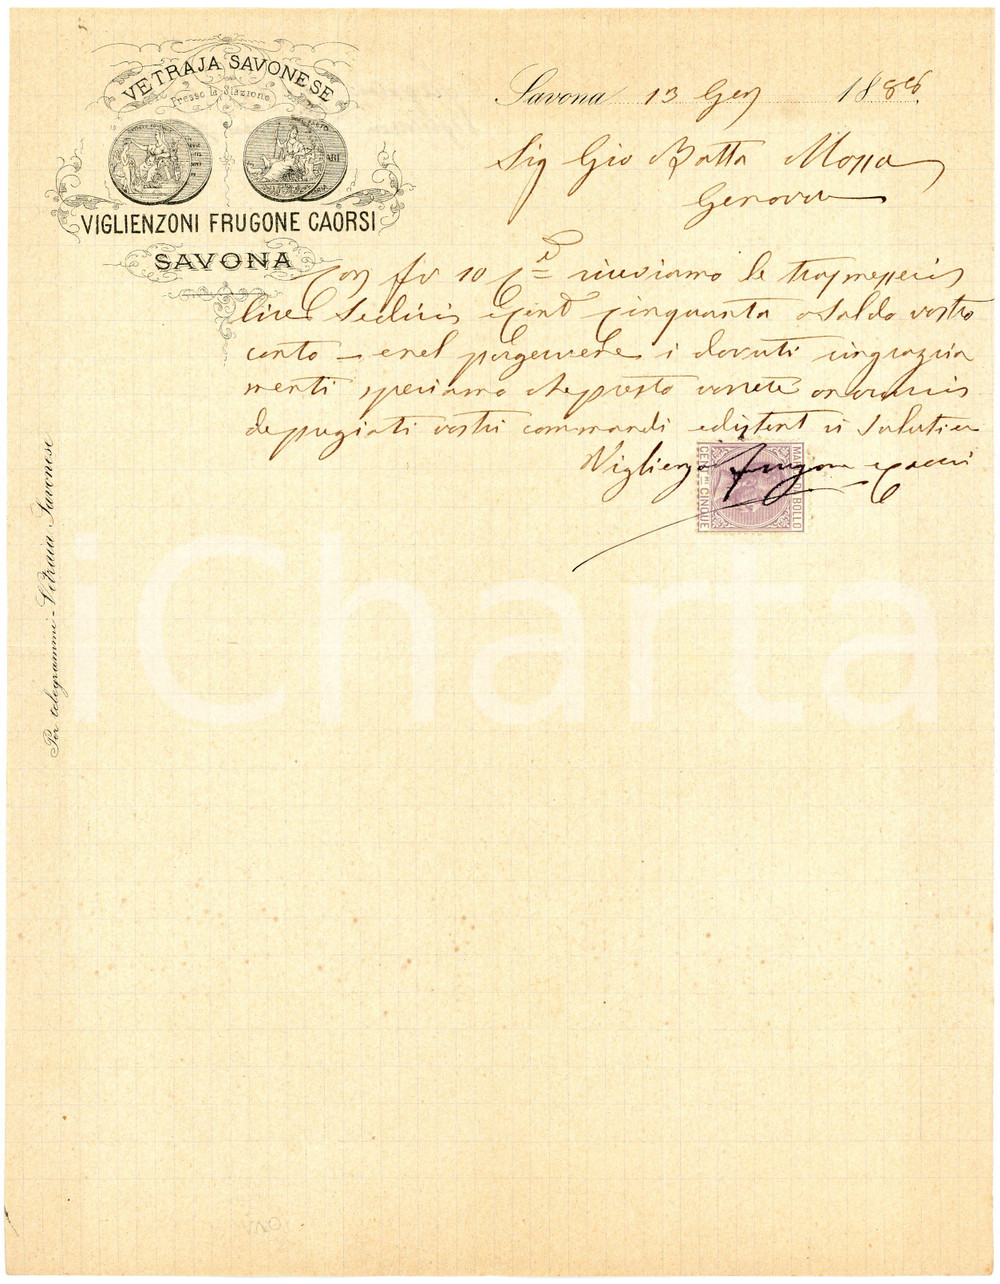 VETRAJA SAVONESE
Presso la Stazione
VIGLIENZONI FRUGONE CAORSI
SAVONA
Savona 13 Gen 1886
Sig Gio Batta
Genova
Con 10 riceviamo le
lire Sedici e Cent Cinquanta a saldo vostro
conto – e nel porgervene i dovuti ringrazia
menti speriamo che presto vorrete onorarcis
de pregiati vostri commandi e vi
Viglienzo Frugone e Caorsi
MARCA DI BOLLO
CENT.MI CINQUE
Per telegrammi - Vetraia Savonese
iCharta